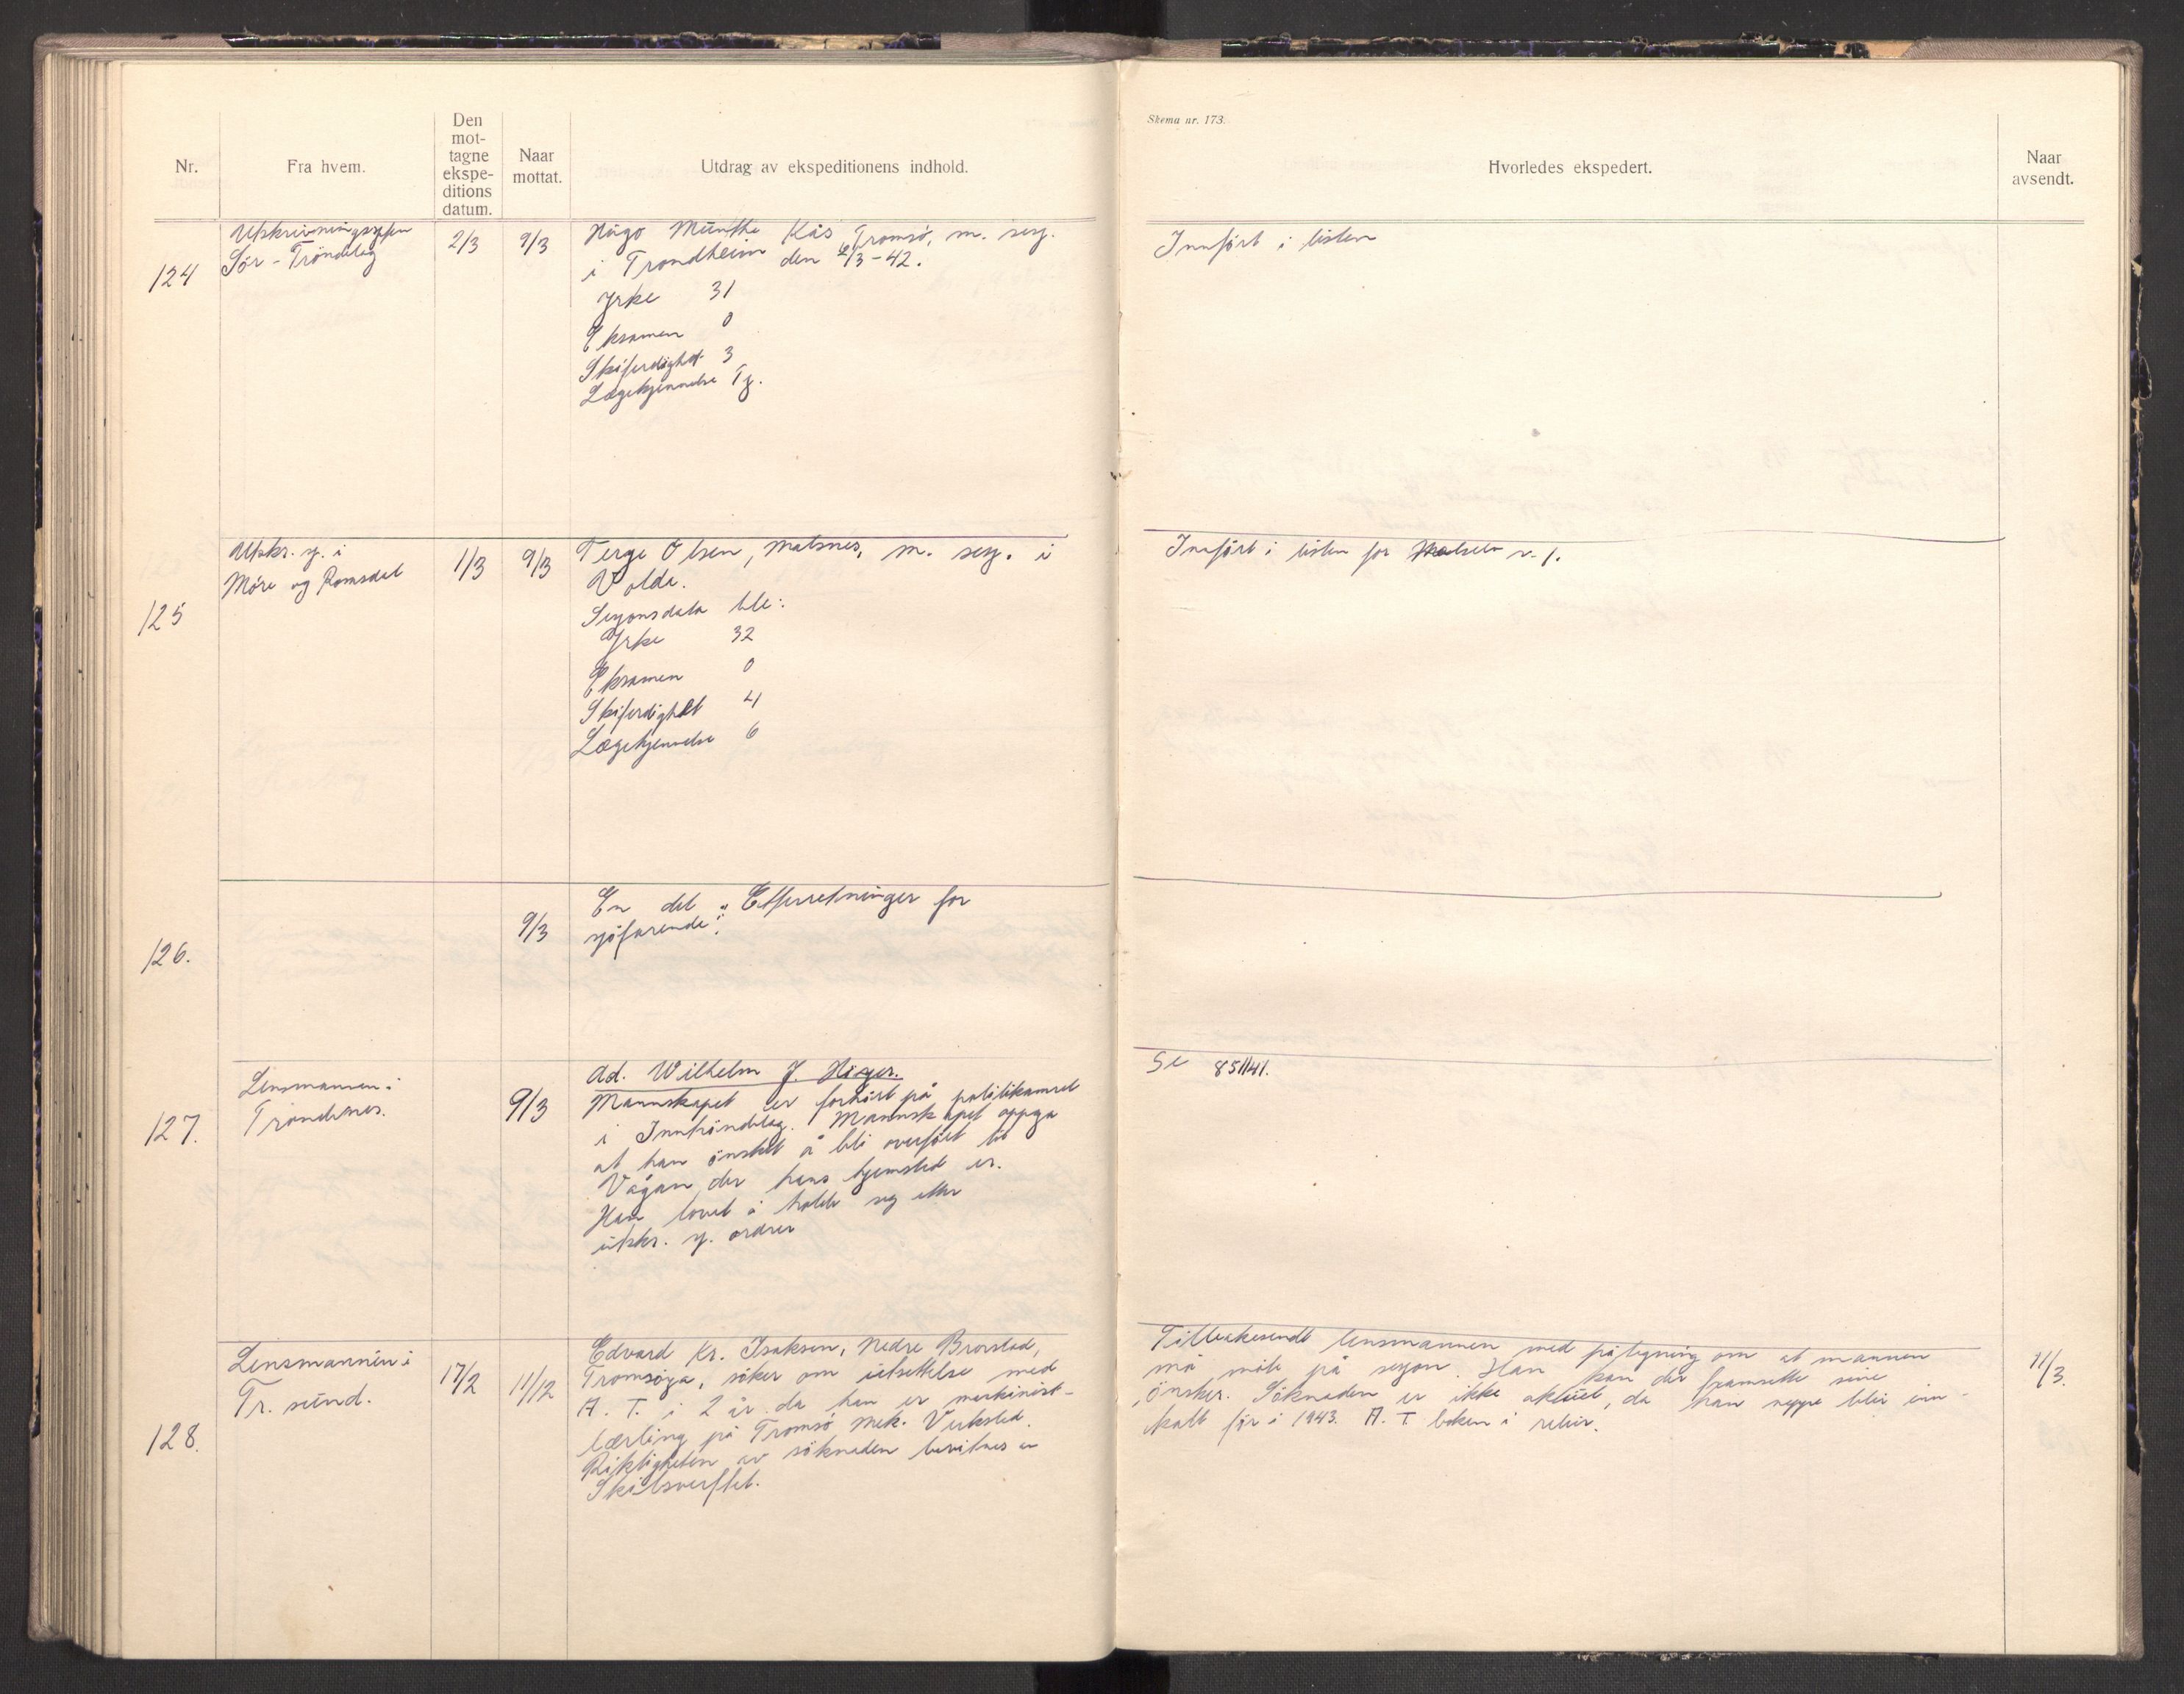 Nr.
Fra hvem.
Den
mot-
tagne
ekspe-
ditions
datum.
Naar
mottat.
Utdrag av ekspeditionens indhold.
124
Utskrivningssjefen
Sör-Tröndelag
2/3
9/3
Hugo Munthe Kås Tromsö, m. sesj.
i Trondheim den 6/3-42.
Yrke 31
Eksamen 0
Skiferdighet 3
Lægekjennelse Tj.
125
Utskr. sj. i
Möre og Romsdal
1/3
9/3
Terje Olsen, Malsnes, m. sesj. i
Volda.
Sesjonsdata ble:
Yrke 32
Eksamen 0
Skiferdighet 4
Lægekjennelse 6
126.
9/3
En del "Etterretninger for
sjöfarende".
127.
Lensmannen i
Trondenes.
9/3
Ad. Wilhelm J.
Mannskapet er forhört på politikamret
i Inntröndelag. Mannskapet oppga
at han önsket å bli overfört til
Vågan, der hans hjemsted er.
Han lovet å holde seg etter
utskr. sj. ordrer
128.
Lensmannen i
Tr. sund.
17/2
11/12
Edvard Kr. Isaksen, Nedre
Tromsöya, söker om utsettelse med
A. T. i 2 år da han er maskinist-
lærling på Tromsö Mek. Verksted.
Riktigheten av söknaden bevitnes av
Skibsverftet.
Skema nr. 173.
Hvorledes ekspedert.
Naar
avsendt.
Innfört i listen
Innfört i listen for Malselv v. f.
Se 851/41.
Tilbakesendt lensmannen med påtegning om at mannen
må möte på sesjon. Han kan der framsette sine
önsker. Söknaden er ikke aktuel, da han neppe blir inn-
kalt för i 1943. A. T. boken i retur.
11/3.